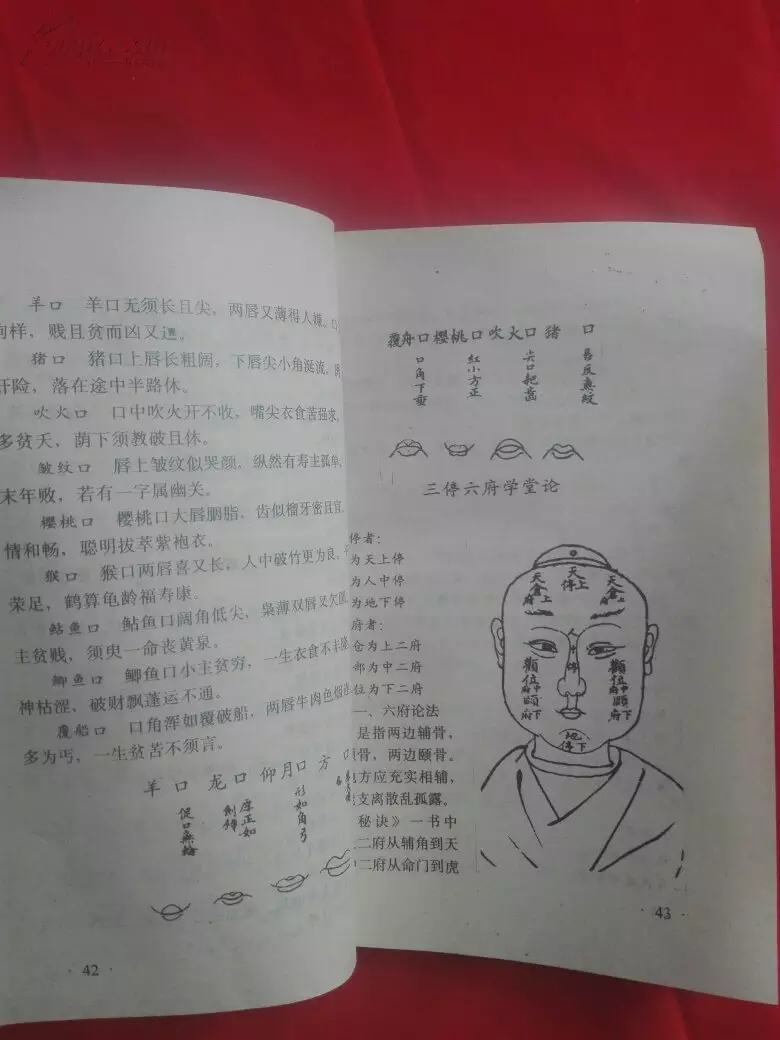 羊口 羊口无须长且尖，两唇又薄得人嫌。口
样，贱且贫而凶又遭。
猪口 猪口上唇长粗阔，下唇尖小角涎流。
险，落在途中半路休。
吹火口 口中吹火开不收，嘴尖衣食苦强求，
多贫夭，荫下须教破且休。
皱纹口 唇上皱纹似哭颜，纵然有寿主孤单，
末年败，若有一字属幽关。
樱桃口 樱桃口大唇胭脂，齿似榴牙密且宜，
情和畅，聪明拔萃紫袍衣。
猴口 猴口两唇喜又长，人中破竹更为良，
荣足，鹤算龟龄福寿康。
鲇鱼口 鲇鱼口阔角低尖，枭薄双唇又欠圆，
主贫贱，须臾一命丧黄泉。
鲫鱼口 鲫鱼口小主贫穷，一生衣食不丰隆，
神枯涩，破财飘蓬运不通。
覆船口 口角浑如覆破船，两唇牛肉色烟
多为丐，一生贫苦不须言。
羊口 龙口 仰月口 方口
形如角弓
· 42 ·
覆舟口 樱桃口 吹火口 猪口
口角下垂
红小方正
尖口
三停六府学堂论
停者：
为天上停
为人中停
为地下停
府者：
仓为上二府
部为中二府
位为下二府
一、六府论法
是指两边辅骨，
骨，两边颐骨。
方应充实相辅，
支离散乱孤露。
秘诀》一书中
二府从辅角到天
二府从命门到虎
天倉上府
天上停
天倉上府
人中停
顴位中府
顴位中府
頤下府
頤下府
地下停
43 ·